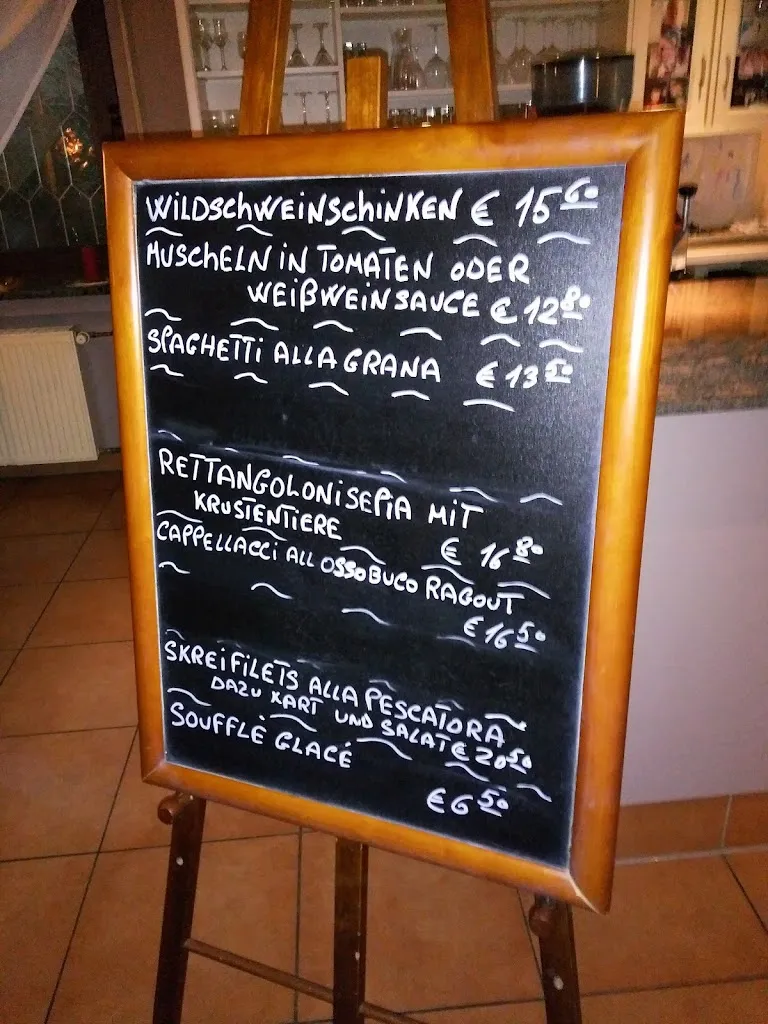 WILDSCHWEINSCHINKEN € 15 60
MUSCHELN IN TOMATEN ODER
WEIßWEINSAUCE € 12 80
SPAGHETTI ALLA GRANA € 13 50
RETTANGOLONISEPIA MIT
KRUSTENTIERE € 16 80
CAPPELLACCI ALL OSSOBUCO RAGOUT
€ 16 50
SKREIFILETS ALLA PESCATORA
DAZU KART UND SALAT € 20 50
SOUFFLÈ GLACÉ
€ 6 50